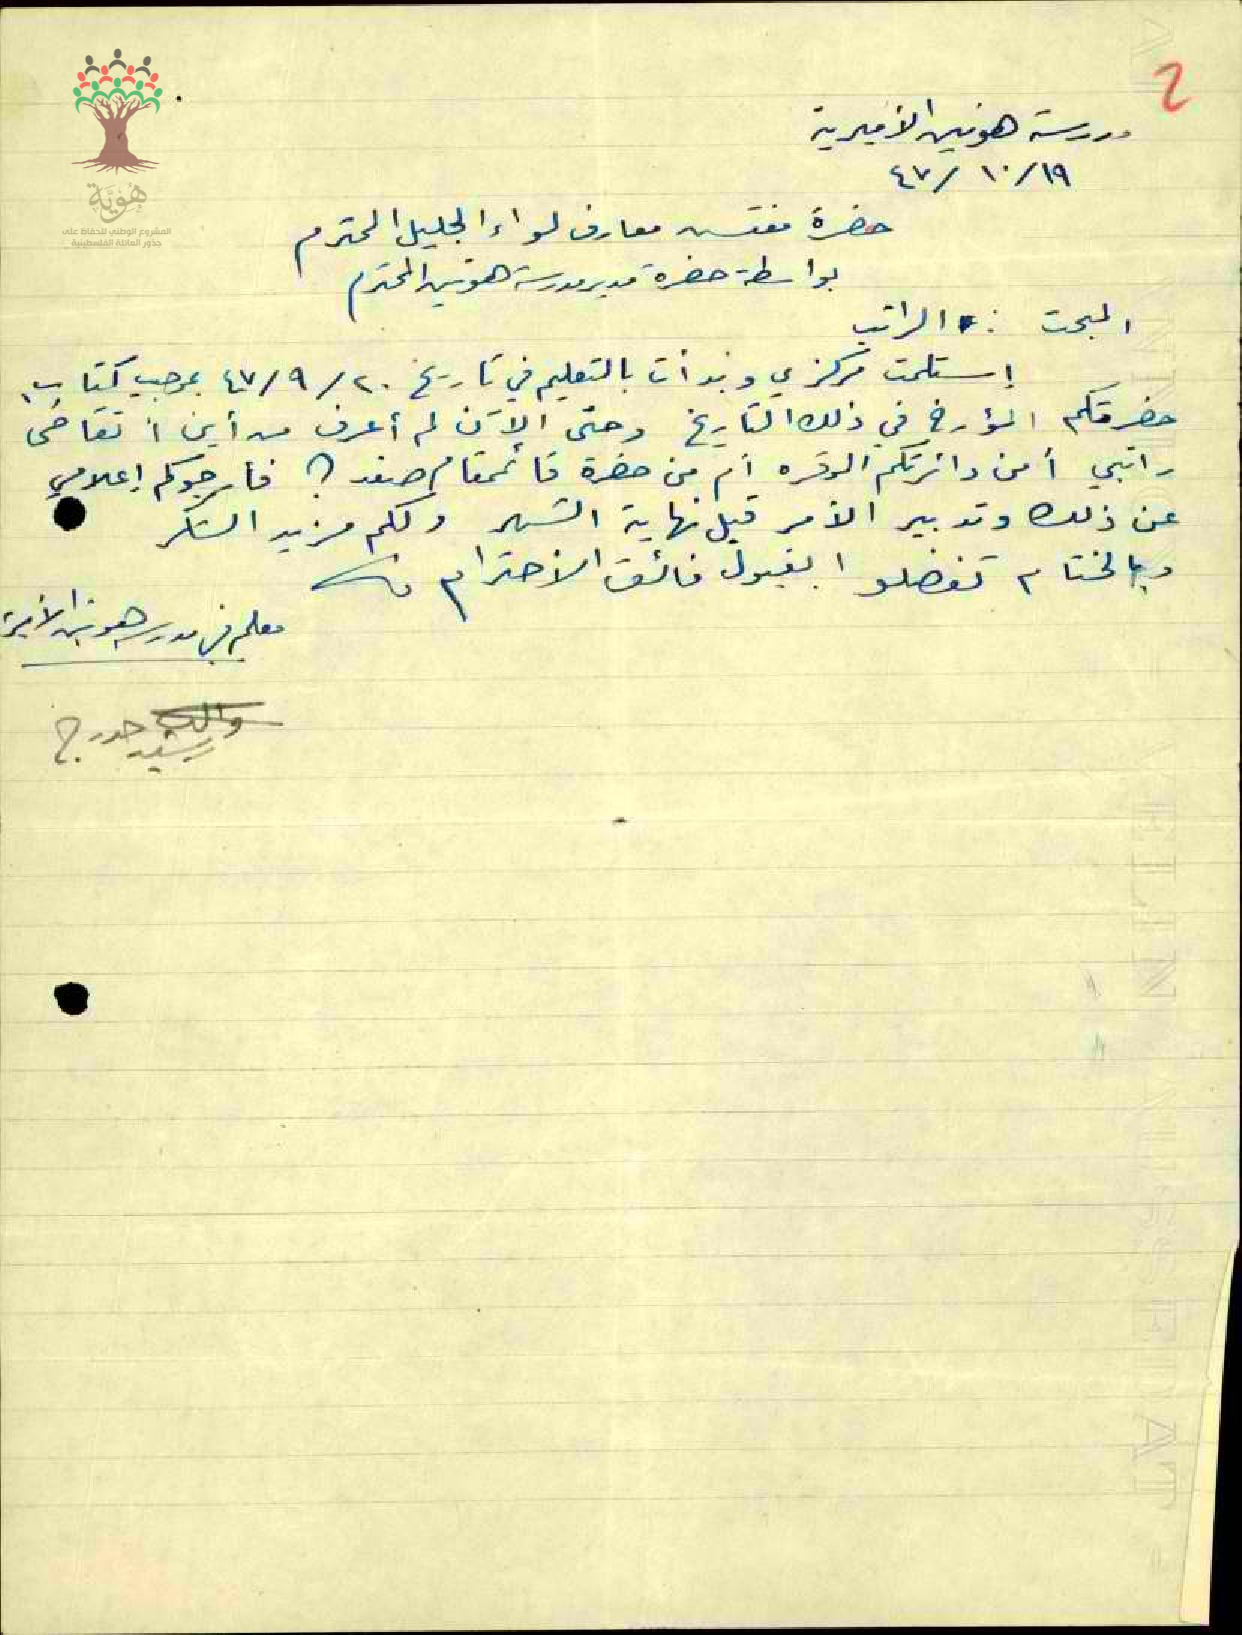 2
هُوِيَّة
المشروع الوطني للحفاظ على
جذور العائلة الفلسطينية
مدرسة هونين الأميرية
١٩/ ١٠ /٤٧
حضرة مفتش معارف لواء الجليل المحترم
بواسطة حضرة مدير مدرسة هونين المحترم
المبحث : الراتب
إستلمت مركزي وبدأت بالتعليم في تاريخ ٢٠ /٩ /٤٧ بموجب كتاب
حضرتكم المؤرخ في ذلك التاريخ وحتى الآن لم أعرف من أين أتقاضى
راتبي أمن دائرتكم الموقره أم من حضرة قائممقام صفد ؟ فأرجوكم إعلامي
عن ذلك وتدبير الأمر قبل نهاية الشهر ولكم مزيد الشكر
وبالختام تفضلوا بقبول فائق الاحترام
معلم في مدرسة هونين الأميرية
رشيد حدرج